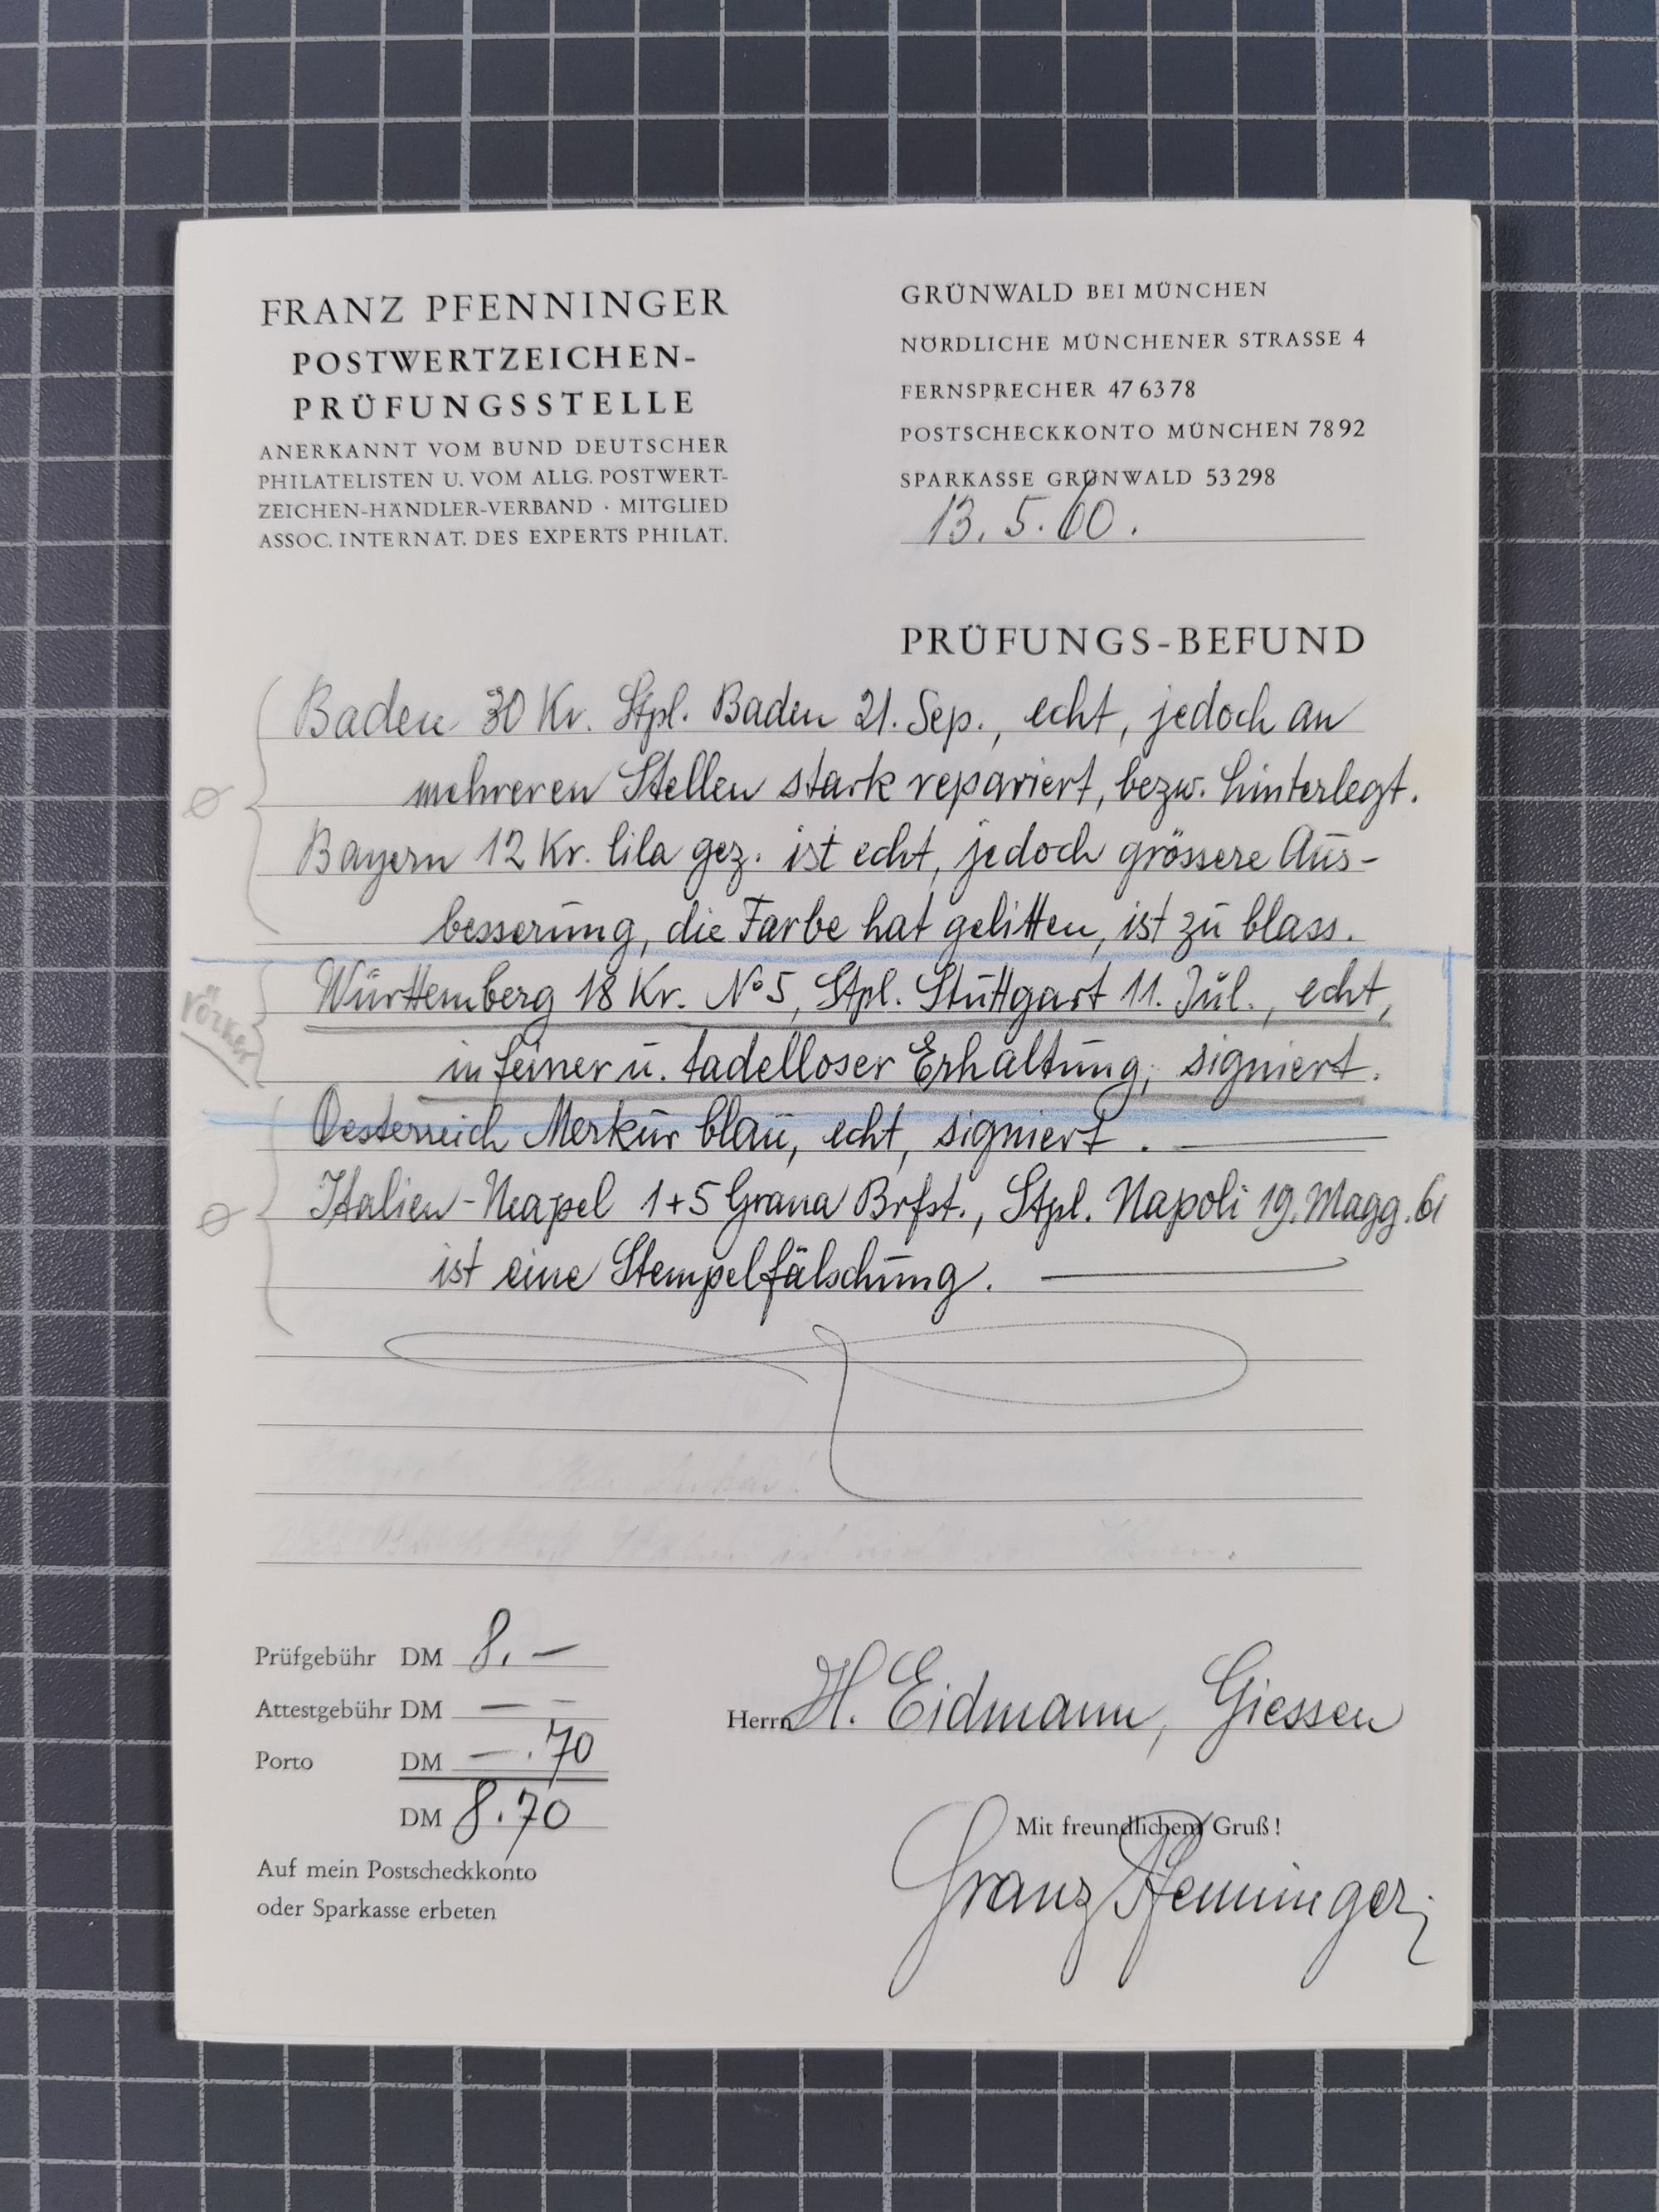 FRANZ PFENNINGER
POSTWERTZEICHEN-
PRÜFUNGSSTELLE
ANERKANNT VOM BUND DEUTSCHER
PHILATELISTEN U. VOM ALLG. POSTWERT-
ZEICHEN-HÄNDLER-VERBAND · MITGLIED
ASSOC. INTERNAT. DES EXPERTS PHILAT.
GRÜNWALD BEI MÜNCHEN
NÖRDLICHE MÜNCHENER STRASSE 4
FERNSPRECHER 47 63 78
POSTSCHECKKONTO MÜNCHEN 78 92
SPARKASSE GRÜNWALD 53 298
13. 5. 60.
PRÜFUNGS-BEFUND
Baden 30 Kr. Stpl. Baden 21. Sep., echt, jedoch an
mehreren Stellen stark repariert, bezw. hinterlegt.
Bayern 12 Kr. lila gez. ist echt, jedoch grössere Aus-
besserung, die Farbe hat gelitten, ist zu blass.
Württemberg 18 Kr. No 5, Stpl. Stuttgart 11. Jul., echt,
in feiner u. tadelloser Erhaltung, signiert.
Oesterreich Merkur blau, echt, signiert.
Italien-Neapel 1+5 Grana Brfst., Stpl. Napoli 19. Magg. 61
ist eine Stempelfälschung.
Prüfgebühr DM 8.–
Attestgebühr DM – –
Porto DM –.70
DM 8.70
Auf mein Postscheckkonto
oder Sparkasse erbeten
Herrn H. Eidmann, Giessen
Mit freundlichem Gruß!
Franz Pfenninger